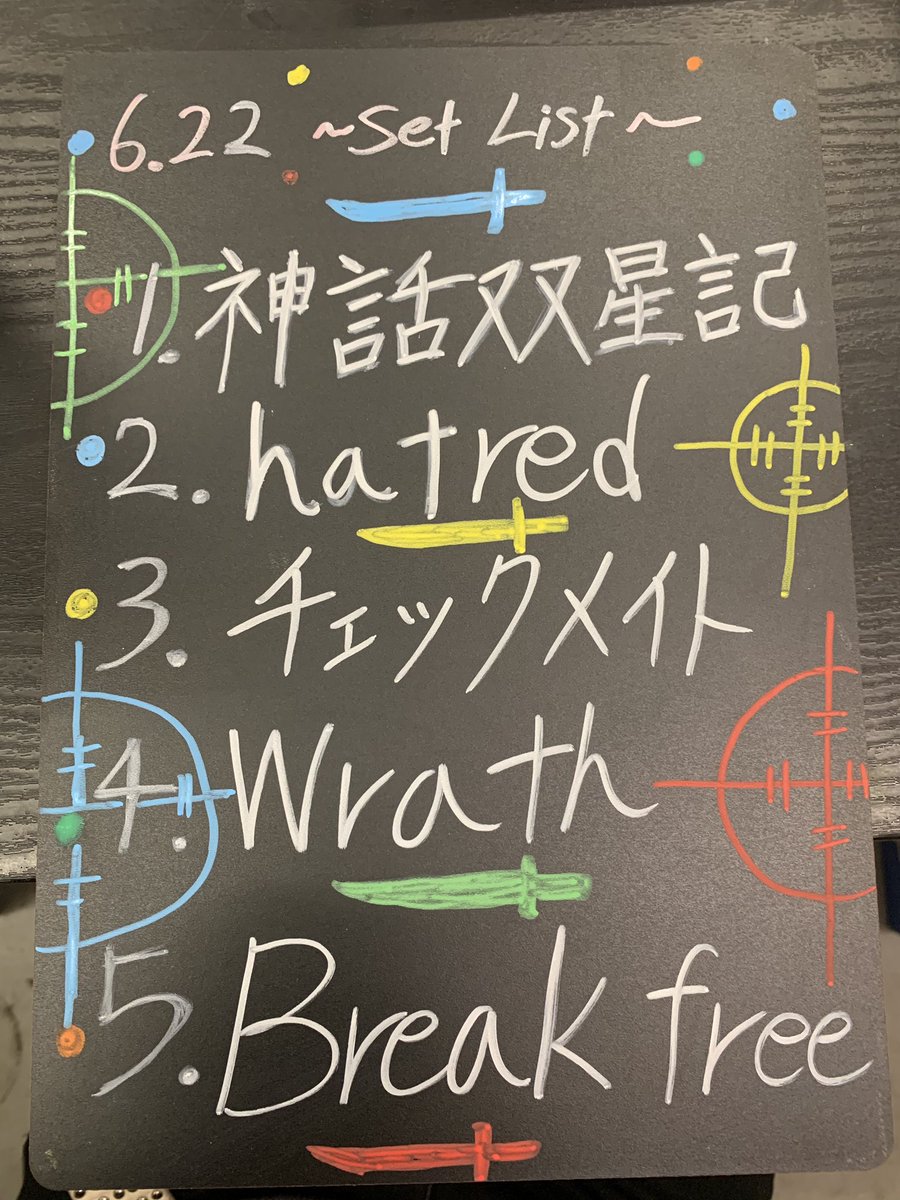 6.22 ~Set List~
1. 神話双星記
2. hatred
3. チェックメイト
4. Wrath
5. Break free